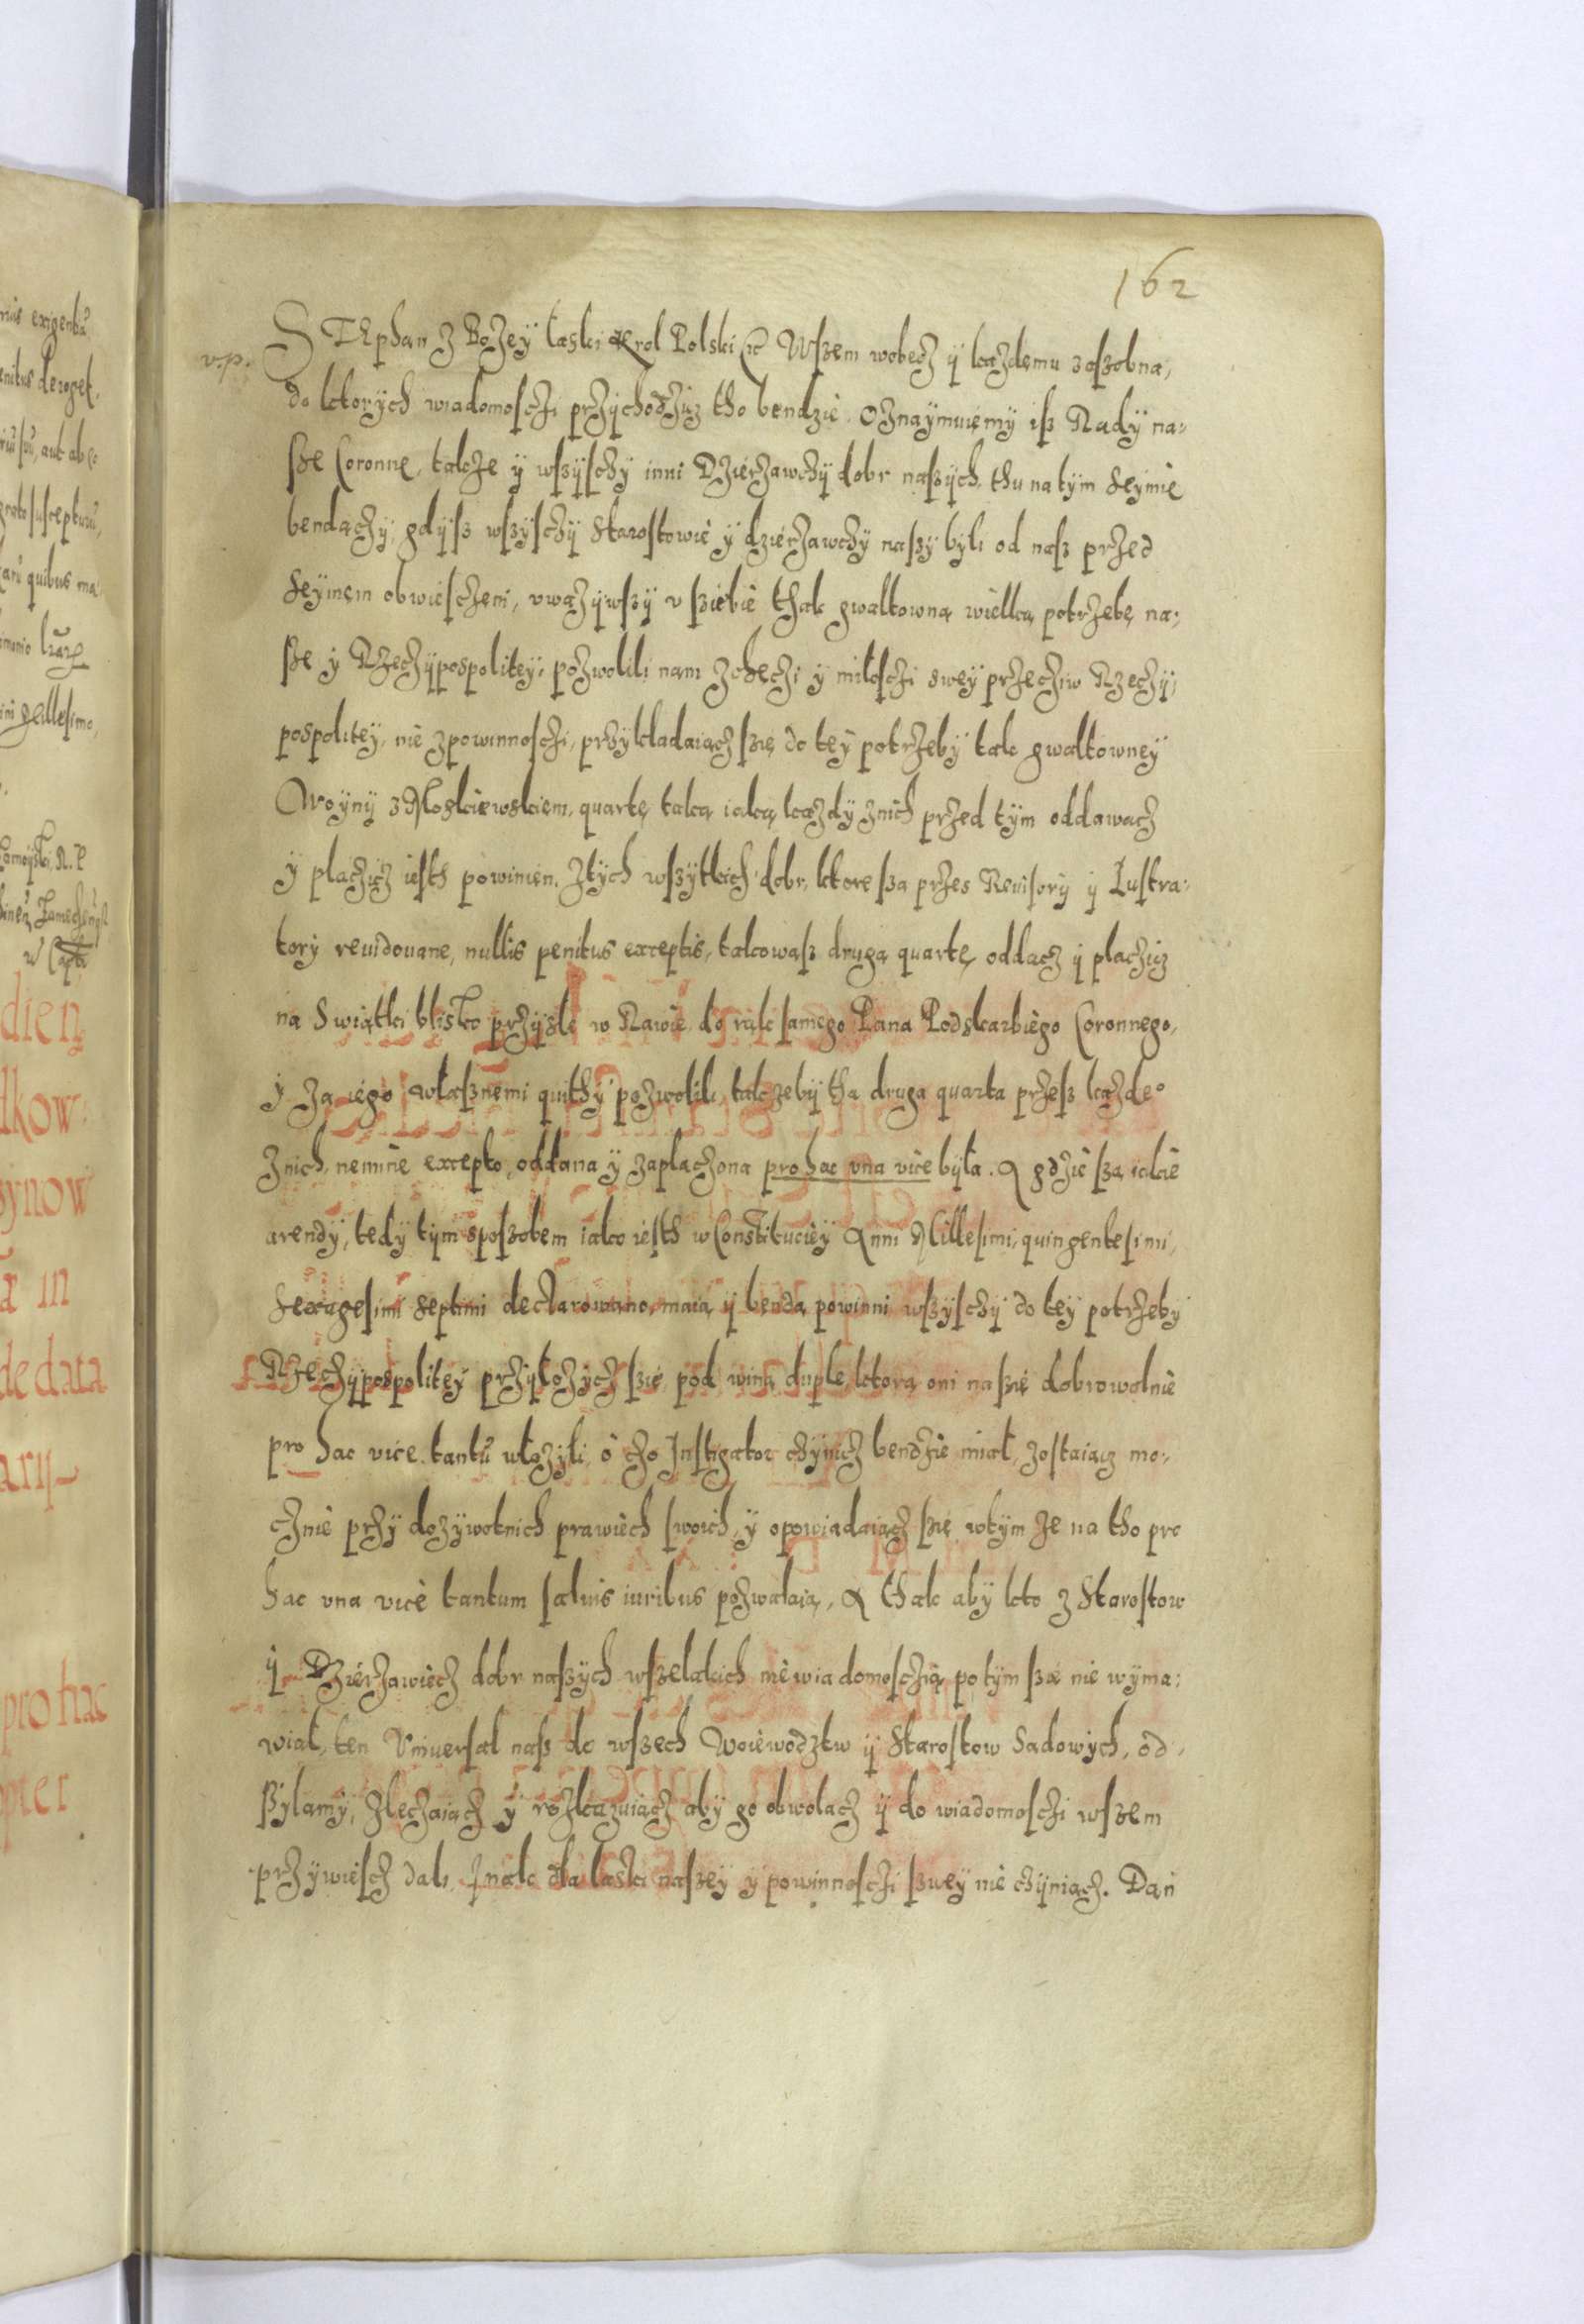 162
v.p.
STEphan z Bożey łaski Krol Polski etc Wszem wobecz y każdemu zoszobna,
do ktorych wiadomosczi przychodzicz tho bendziè. Oznaymuiemy isz Rady na⸗
sze Coronne, takze y wszyschy inni Dzierzawchy dobr naszych, thu na tym Seymiè
bendączy, gdysz wszyschy Starostowiè y dzierzawchy naszy byli od nasz przed
Seymem obwiesczeni, vwazywszy v sziebiè thak gwaltowną wielką potrzebę na⸗
sze y Rzeczypospolitey, pozwolili nam z checzi y miłosczi swey przecziw Rzeczy⸗
pospolitey, niè z powinnosczi, przykladaiącz szię do tey potrzeby tak gwaltowney
Woyny z Moskiewskiem, quartę taką iaką każdy z nich przed tym oddawacz
y placzicz iesth powinien. Z tych wszytkich dobr, ktore szą przes Reuisory y Lustra⸗
tory reuidouane, nullis penitus exceptis, takowąsz drugą quartę oddacz y placzicz
na Swiątki blisko przyszłe w Rawiè do rąk samego Pana Podskarbiègo Coronnego,
y za iego własznemi quithy pozwolili, tak zeby tha druga quarta przesz każdeº
z nich, nemine excepto, oddana y zaplaczona pro hac vna vice była. A gdziè szą iakiè
arendy, tedy tym sposzobem iako iesth w Constituciey Anni Millesimi, quingentesimi,
Sexagesimi septimi declarowano, maią y bendą powinni wszyschy do tey potrzeby
Rzeczypospolitey przyłozycz szię pod winą duplę, ktorą oni na szię dobrowolniè
pro hac vice tantũ włozyli, o czo Instigator czynicz bendziè miał, zostaiącz mo⸗
cżniè przy dozywotnich prawiech swoich, y opowiadaiącz szię w tym ze na tho pro
hac vna vicè tantum saluis iuribus pozwalaią, A thak aby kto z Starostow
y Dzierzawiecz dobr naszych wszelakich niewiadomosczią potym szię nie wyma⸗
wiał, ten Vniuersał nasz do wszech Woiewodztw y Starostow Sadowych, od⸗
sżylamy, zleczaiącz y rozkazuiącz aby go obwołacz y do wiadomosczi wszem
przywiescz dali, Inak dla łaski naszey y powinnosczi szwey niè czyniącz. Dan